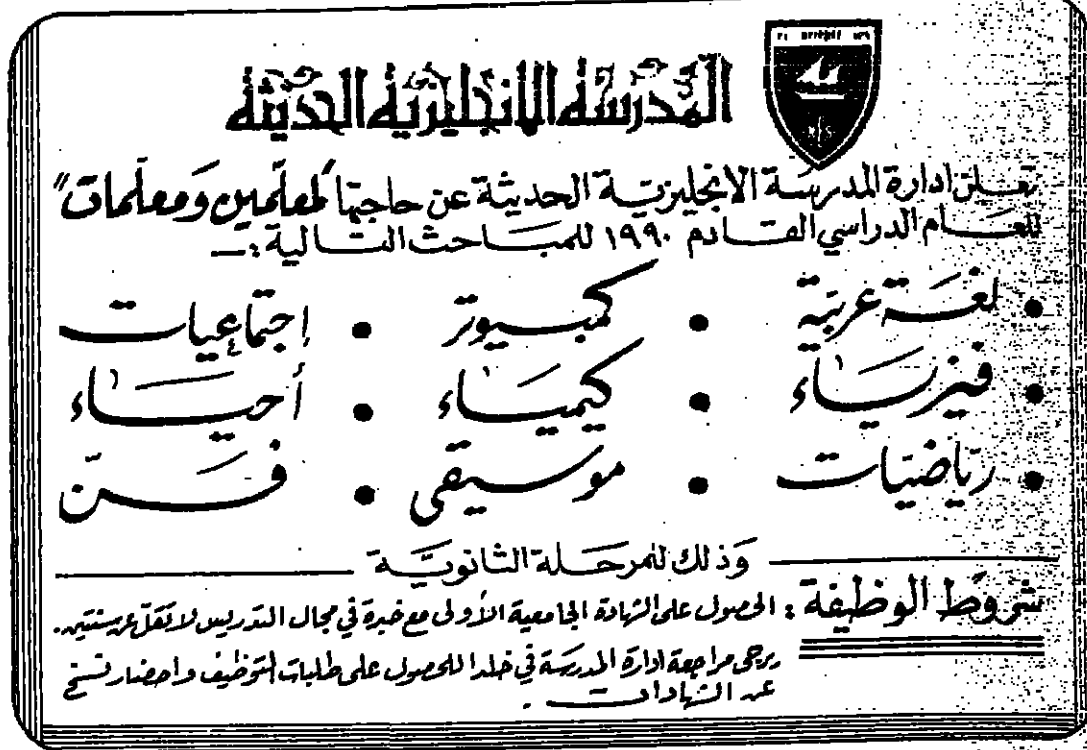 المدرسة الانجليزية الحديثة
تعلن ادارة المدرسة الانجليزية الحديثة عن حاجتها "لمعلمين ومعلمات"
للعام الدراسي القادم ١٩٩٠ للمباحث التالية :ـ
• لغة عربية • كمبيوتر • إجتماعيات
• فيزياء • كيمياء • أحياء
• رياضيات • موسيقى • فن
وذلك للمرحلة الثانوية
شروط الوظيفة : الحصول على الشهادة الجامعية الأولى مع خبرة في مجال التدريس لا تقل عن سنتين.
يرجى مراجعة ادارة المدرسة في خلدا للحصول على طلبات التوظيف واحضار نسخ
عن الشهادات .